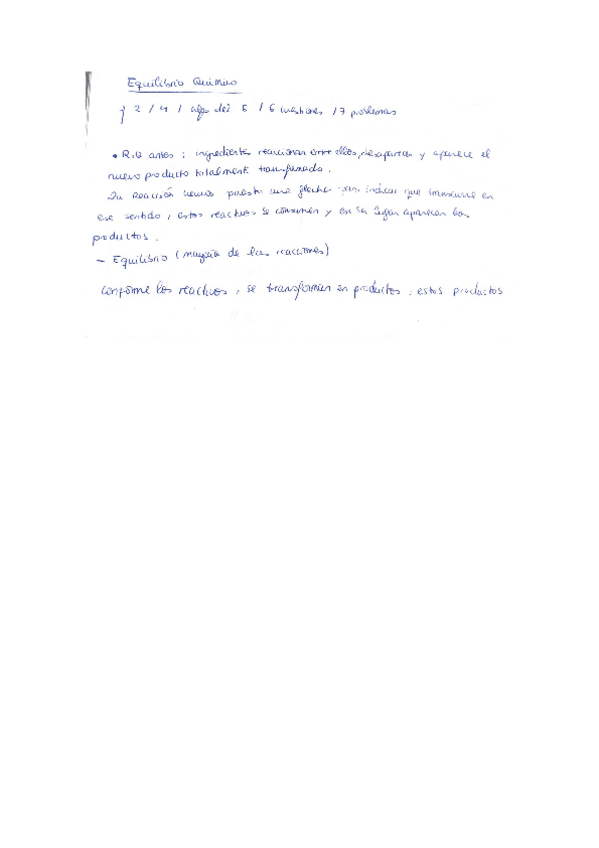 Equilibrio Químico
2 / 4 / algo del 5 / 6 cuestiones / 7 problemas
• R.Q antes : ingredientes reaccionan entre ellos, desaparecen y aparece el
nuevo producto totalmente transformado.
En Reacción hemos puesto una flecha para indicar que transcurre en
ese sentido, estos reactivos se consumen y en su lugar aparecen los
productos.
- Equilibrio (mayoría de las reacciones)
conforme los reactivos, se transforman en productos, estos productos